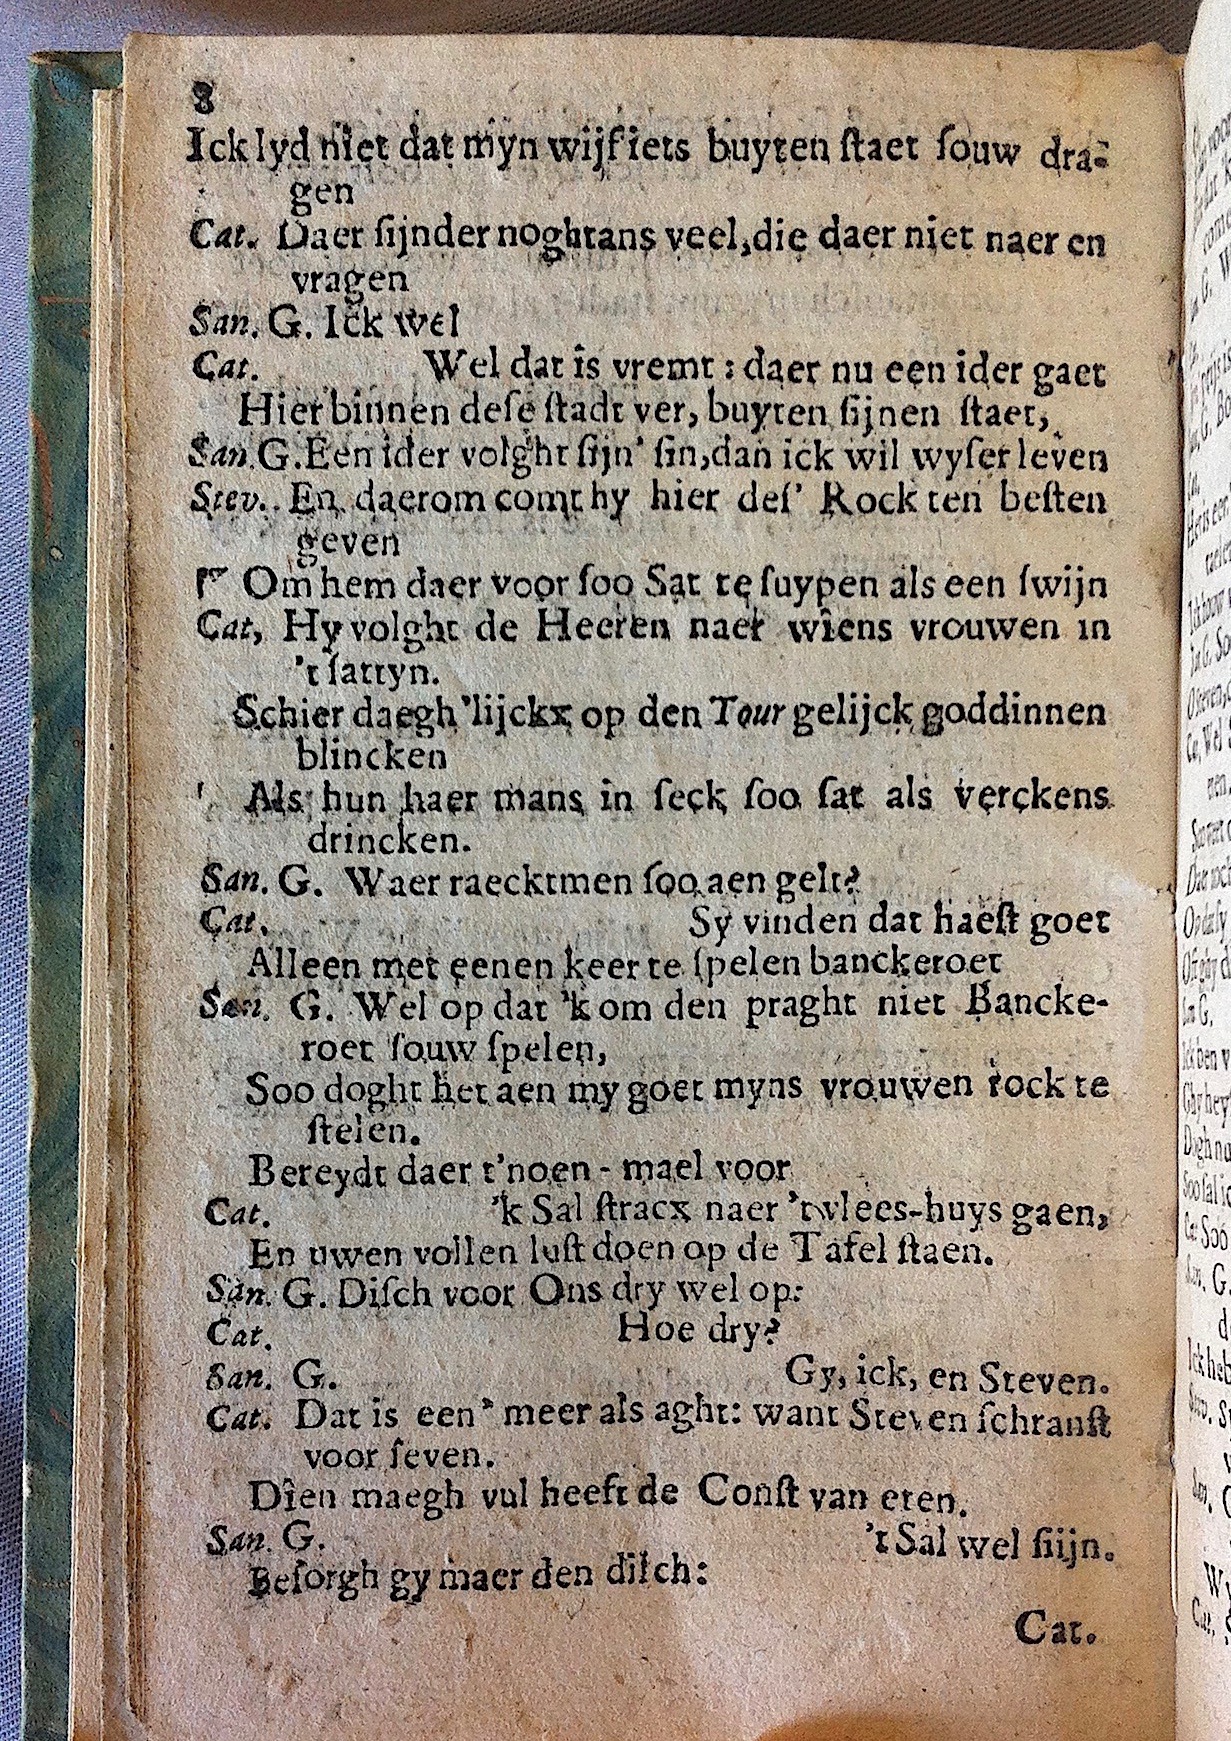 8
Ick lyd niet dat myn wijf iets buyten ſtaet ſouw dra-
gen
Cat. Daer ſijnder noghtans veel, die daer niet naer en
vragen
San. G. Ick wel
Cat. Wel dat is vremt : daer nu een ider gaet
Hier binnen deſe ſtadt ver, buyten ſijnen ſtaet,
San. G. Een ider volght ſijn' ſin, dan ick wil wyſer leven
Stev. En daerom comt hy hier deſ' Rock ten beſten
geven
Om hem daer voor ſoo Sat te ſuypen als een ſwijn
Cat, Hy volght de Heeren naer wîens vrouwen in
't ſattyn.
Schier daegh'lijckx op den Tour gelijck goddinnen
blincken
Als hun haer mans in ſeck ſoo ſat als verckens
drincken.
San. G. Waer raecktmen ſoo aen gelt?
Cat. Sy vinden dat haeſt goet
Alleen met eenen keer te ſpelen banckeroet
San. G. Wel op dat 'k om den praght niet Bancke-
roet ſouw ſpelen,
Soo doght het aen my goet myns vrouwen rock te
ſtelen.
Bereydt daer t'noen-mael voor
Cat. 'k Sal ſtracx naer 't vlees-huys gaen,
En uwen vollen luſt doen op de Tafel ſtaen.
San. G. Diſch voor Ons dry wel op:
Cat. Hoe dry?
San. G. Gy, ick, en Steven.
Cat. Dat is een' meer als aght: want Steven ſchranſt
voor ſeven.
Dîen maegh vul heeft de Conſt van eten.
San. G. 't Sal wel ſiijn.
Beſorgh gy maer den diſch:
Cat.